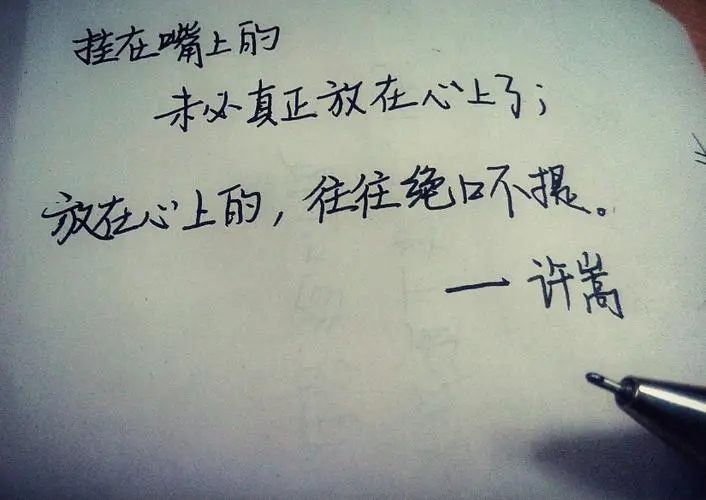 挂在嘴上的
未必真正放在心上了；
放在心上的，往往绝口不提。
— 许嵩